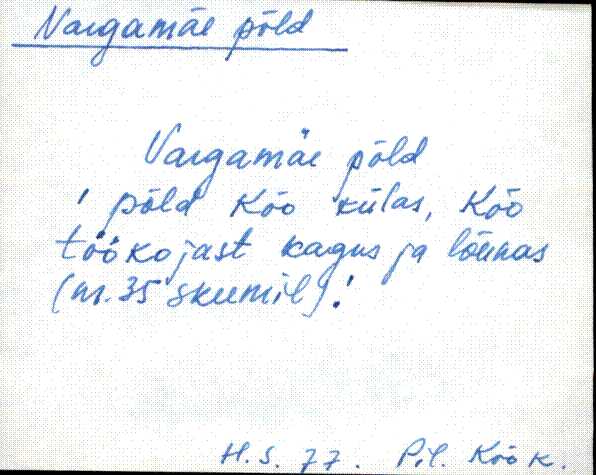 Vargamäe põld
Vargamäe põld
' põld Kõo külas, Kõo
töökojast kagus ja lõunas
(nr. 35 skeemil)'.
H.S. 77. Pil. Kõo k.